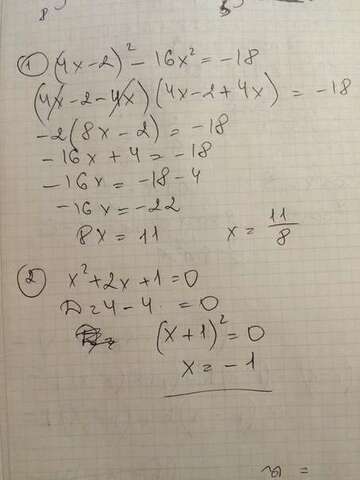 ① (4x-2)² - 16x² = -18
(4x-2-4x)(4x-2+4x) = -18
-2(8x-2) = -18
-16x+4 = -18
-16x = -18-4
-16x = -22
8x = 11 x = 11/8
② x²+2x+1=0
D=4-4 = 0
(x+1)² = 0
x = -1